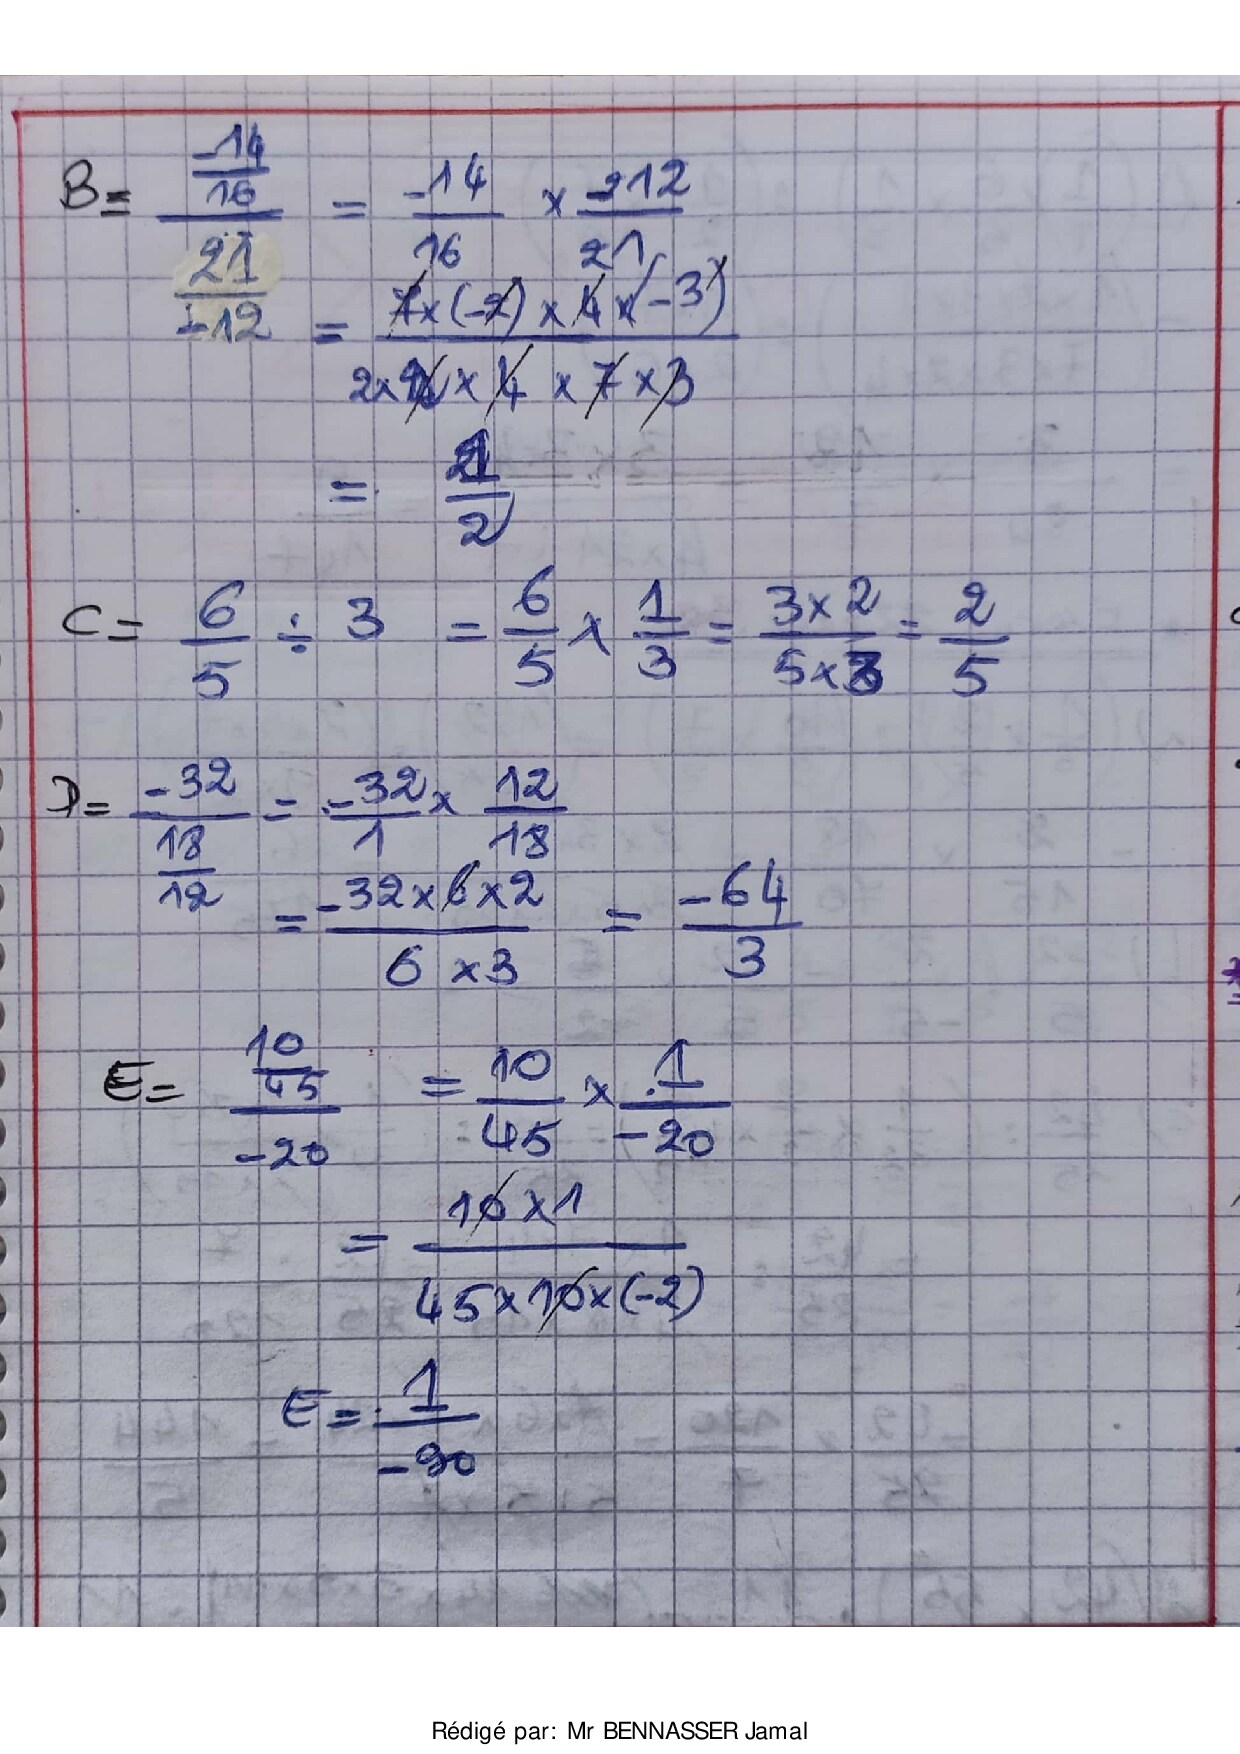 B = (-14/16)/(21/-12) = -14/16 × -12/21
= 7×(-2)×4×(-3) / 2×2×4×7×3
= 1/2
C = 6/5 ÷ 3 = 6/5 × 1/3 = 3×2/5×3 = 2/5
D = -32/(18/12) = -32/1 × 12/18
= -32×6×2 / 6×3 = -64/3
E = (10/45)/-20 = 10/45 × 1/-20
= 10×1 / 45×10×(-2)
E = 1/-90
Rédigé par: Mr BENNASSER Jamal